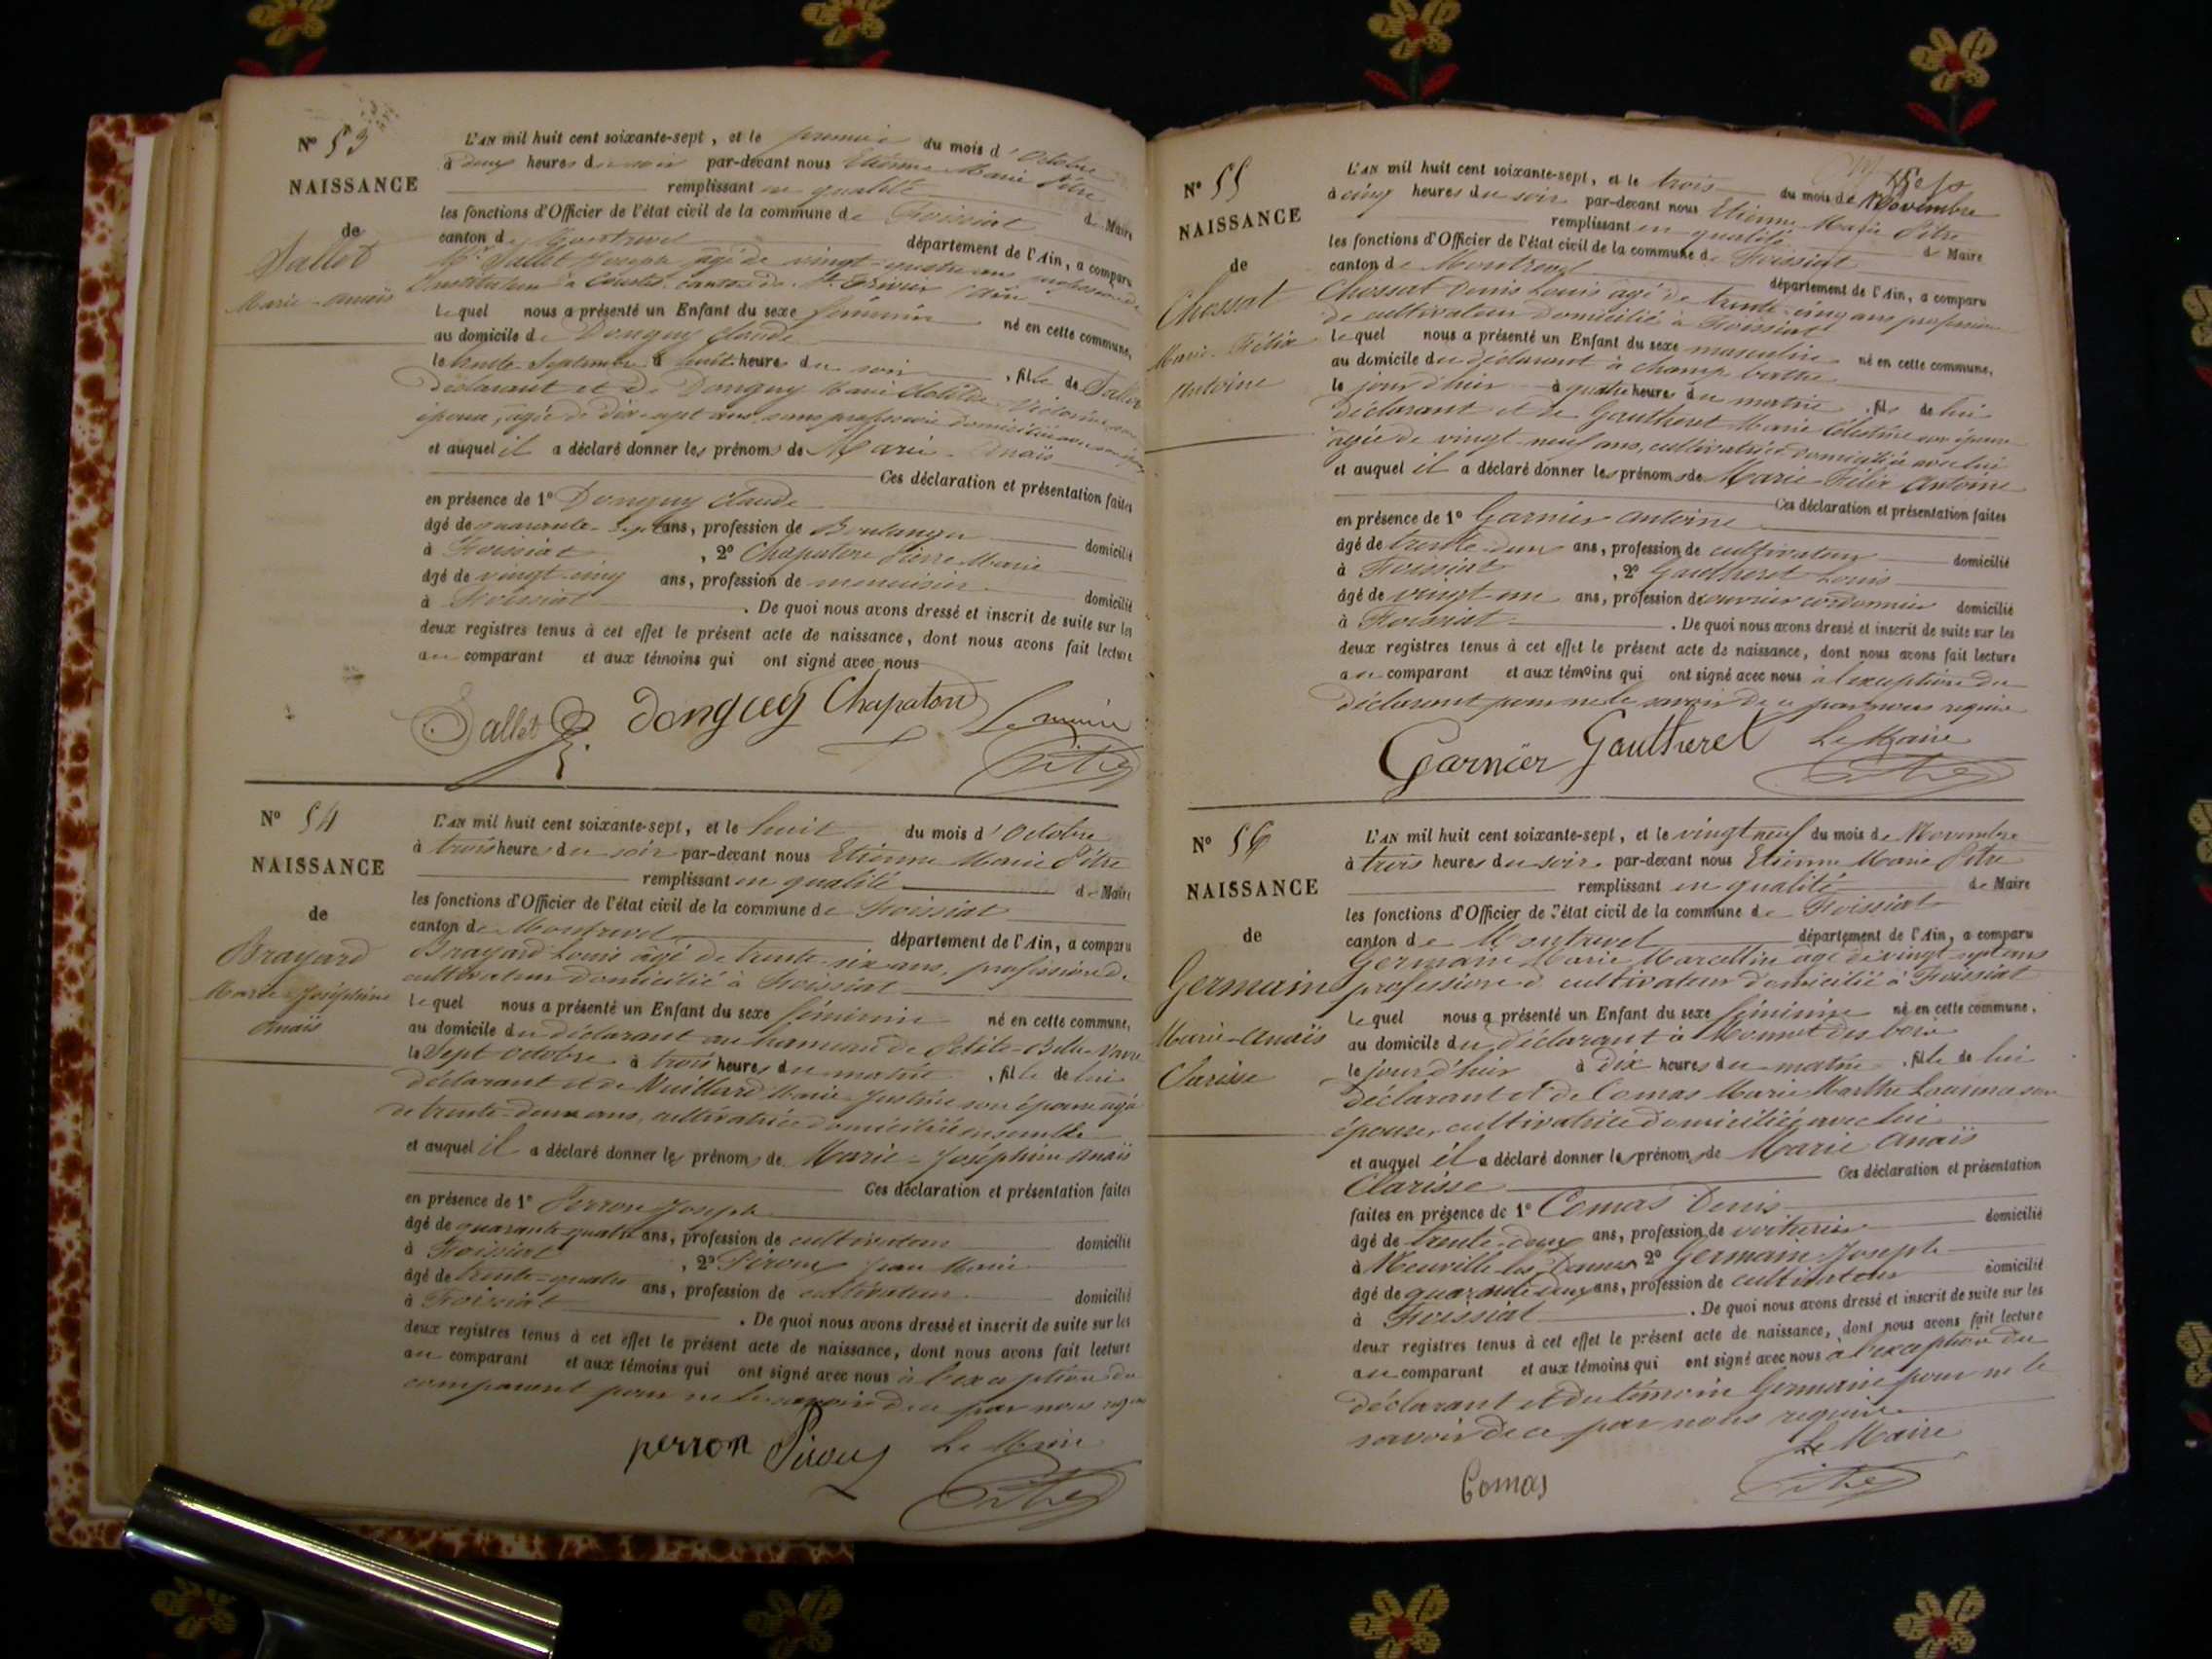 N° 53
NAISSANCE
de
Sallet
Marie-Anaïs
L'AN mil huit cent soixante-sept, et le premier du mois d'Octobre
à deux heures du soir par-devant nous Etienne Marie Pitre
remplissant en qualité de Maire
les fonctions d'Officier de l'état civil de la commune de Foissiat
canton de Montrevel département de l'Ain, a comparu
Mr Sallet Joseph âgé de vingt-quatre ans profession de
instituteur à Courtes canton de St Trivier (Ain
Lequel nous a présenté un Enfant du sexe féminin né en cette commune,
au domicile de Donguy Claude
le trente Septembre à huit heures du soir, fille de Sallet
déclarant et de Donguy Marie Clotilde Victorine son
épouse, âgée de dix-sept ans, sans profession domiciliée avec
et auquel il a déclaré donner les prénoms de Marie-Anaïs
Ces déclaration et présentation faites
en présence de 1° Donguy Claude
âgé de quarante-sept ans, profession de Boulanger domicilié
à Foissiat, 2° Chapaton Pierre Marie
âgé de vingt-cinq ans, profession de menuisier domicilié
à Foissiat. De quoi nous avons dressé et inscrit de suite sur les
deux registres tenus à cet effet le présent acte de naissance, dont nous avons fait lecture
au comparant et aux témoins qui ont signé avec nous
Sallet Donguy Chapaton Le maire
Pitre
N° 54
NAISSANCE
de
Brayard
Marie-Joséphine
Anaïs
L'AN mil huit cent soixante-sept, et le huit du mois d'Octobre
à trois heures du soir par-devant nous Etienne Marie Pitre
remplissant en qualité de Maire
les fonctions d'Officier de l'état civil de la commune de Foissiat
canton de Montrevel département de l'Ain, a comparu
Brayard Louis âgé de trente-six ans, profession de
cultivateur domicilié à Foissiat
Lequel nous a présenté un Enfant du sexe féminin né en cette commune,
au domicile du déclarant au hameau de Petite-Belle-
le Sept Octobre à trois heures du matin, fille de lui
déclarant et de Vuillard Marie-Justine son épouse âgée
de trente-deux ans, cultivatrice domiciliés ensemble
et auquel il a déclaré donner les prénoms de Marie-Joséphine Anaïs
Ces déclaration et présentation faites
en présence de 1° Perron Joseph
âgé de quarante-quatre ans, profession de cultivateur domicilié
à Foissiat, 2° Piroux Jean Marie
âgé de trente-quatre ans, profession de cultivateur domicilié
à Foissiat. De quoi nous avons dressé et inscrit de suite sur les
deux registres tenus à cet effet le présent acte de naissance, dont nous avons fait lecture
au comparant et aux témoins qui ont signé avec nous à l'exception du
comparant pour ne le savoir de ce par nous requis
perron Piroux Le Maire
Pitre
N° 55
NAISSANCE
de
Chossat
Marie-Félix
Antoine
L'AN mil huit cent soixante-sept, et le trois du mois de Novembre
à cinq heures du soir par-devant nous Etienne Marie Pitre
remplissant en qualité de Maire
les fonctions d'Officier de l'état civil de la commune de Foissiat
canton de Montrevel département de l'Ain, a comparu
Chossat Denis Louis âgé de trente-cinq ans profession
de cultivateur domicilié à Foissiat
Lequel nous a présenté un Enfant du sexe masculin né en cette commune,
au domicile du déclarant à Champ
le jourd'hui à quatre heures du matin, fils de lui
déclarant et de Gautheret Marie Célestine son épouse
âgée de vingt-neuf ans, cultivatrice domiciliée avec lui
et auquel il a déclaré donner les prénoms de Marie-Félix Antoine
Ces déclaration et présentation faites
en présence de 1° Garnier Antoine
âgé de trente-deux ans, profession de cultivateur domicilié
à Foissiat, 2° Gautheret Louis
âgé de vingt-un ans, profession de ouvrier cordonnier domicilié
à Foissiat. De quoi nous avons dressé et inscrit de suite sur les
deux registres tenus à cet effet le présent acte de naissance, dont nous avons fait lecture
au comparant et aux témoins qui ont signé avec nous à l'exception du
déclarant pour ne le savoir de ce par nous requis
Garnier Gautheret Le Maire
Pitre
N° 56
NAISSANCE
de
Germain
Marie-Anaïs
Clarisse
L'AN mil huit cent soixante-sept, et le vingt neuf du mois de Novembre
à trois heures du soir par-devant nous Etienne Marie Pitre
remplissant en qualité de Maire
les fonctions d'Officier de l'état civil de la commune de Foissiat
canton de Montrevel département de l'Ain, a comparu
Germain Marie Marcellin âgé de vingt-sept ans
profession de cultivateur domicilié à Foissiat
Lequel nous a présenté un Enfant du sexe féminin né en cette commune,
au domicile du déclarant à des bois
le jourd'hui à dix heures du matin, fille de lui
déclarant et de Comas Marie Marthe son
épouse, cultivatrice domiciliée avec lui
et auquel il a déclaré donner les prénoms de Marie Anaïs
Clarisse Ces déclaration et présentation
faites en présence de 1° Comas Denis
âgé de trente-deux ans, profession de voiturier domicilié
à Neuville les Dames 2° Germain Joseph
âgé de quarante cinq ans, profession de cultivateur domicilié
à Foissiat. De quoi nous avons dressé et inscrit de suite sur les
deux registres tenus à cet effet le présent acte de naissance, dont nous avons fait lecture
au comparant et aux témoins qui ont signé avec nous à l'exception du
déclarant et du témoin Germain pour ne le
savoir de ce par nous requis
Le Maire
Comas Pitre